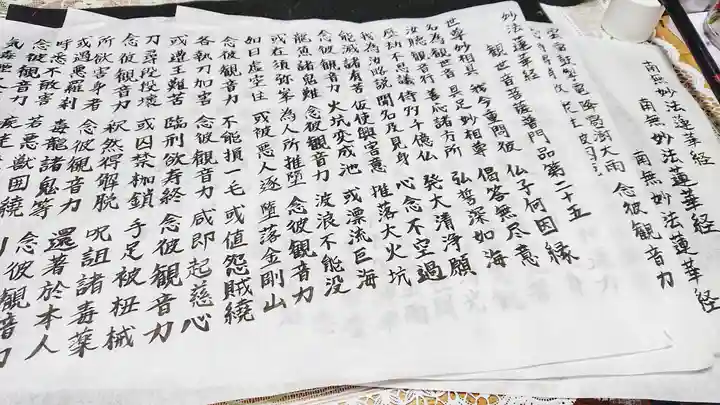 南無妙法蓮華経
南無妙法蓮華経
南無妙法蓮華経
念彼觀音力
雲雷鼓掣電 降雹澍大雨
妙法蓮華経
觀世音菩薩普門品第二十五
世尊妙相具 我今重問彼 仏子何因縁
名為觀世音 具足妙相尊 偈答無尽意
汝聴觀音行 善応諸方所 弘誓深如海
歴劫不思議 侍多千億仏 發大清浄願
我為汝略説 聞名及見身 心念不空過
能滅諸有苦 仮使興害意 推落大火坑
念彼觀音力 火坑変成池 或漂流巨海
龍魚諸鬼難 念彼觀音力 波浪不能没
或在須弥峯 為人所推堕 念彼觀音力
如日虚空住 或被悪人逐 堕落金剛山
念彼觀音力 不能損一毛 或値怨賊繞
各執刀加害 念彼觀音力 咸即起慈心
或遭王難苦 臨刑欲寿終 念彼觀音力
刀尋段段壊 或囚禁枷鎖 手足被杻械
念彼觀音力 釈然得解脱 呪詛諸毒薬
所欲害身者 念彼觀音力 還著於本人
或遇悪羅刹 毒龍諸鬼等 念彼觀音力
呼悉不敢害 若悪獣囲繞
念彼觀音力
気毒